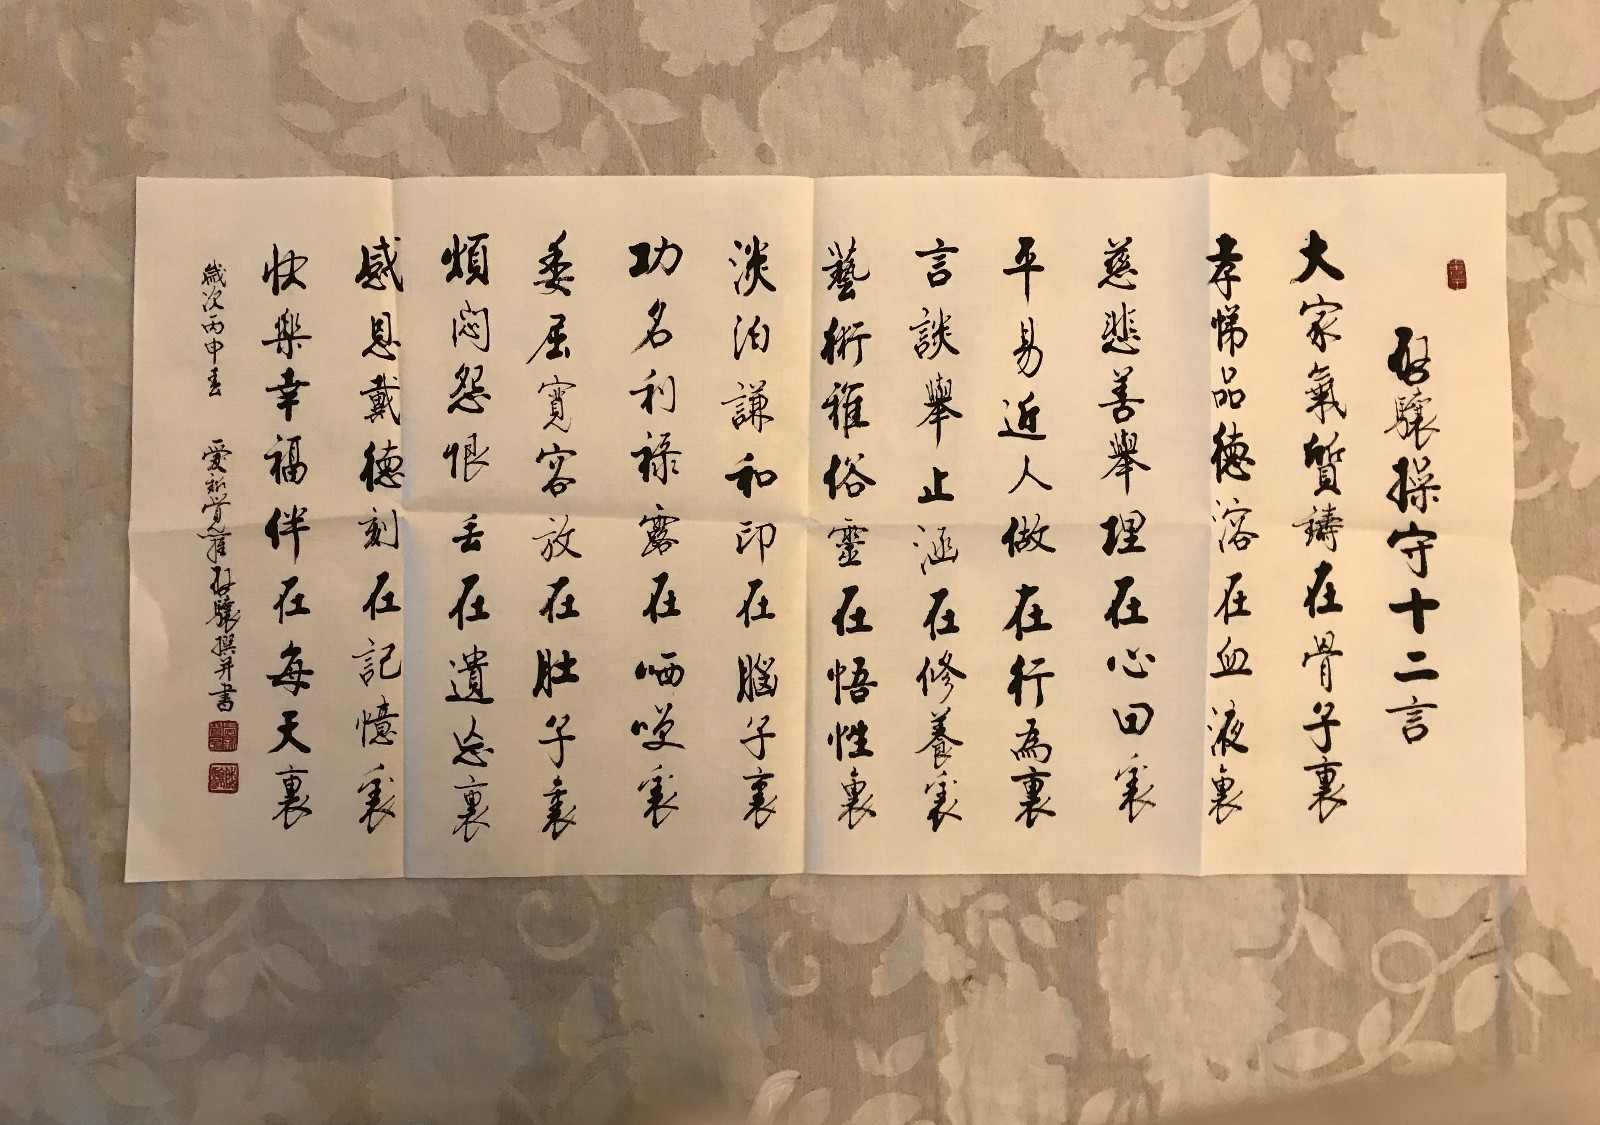 啟驤操守十二言
大家氣質鑄在骨子裏
孝悌品德溶在血液裏
慈悲善舉埋在心田裏
平易近人做在行為裏
言談舉止涵在修養裏
藝術雅俗靈在悟性裏
淡泊謙和印在腦子裏
功名利祿露在哂笑裏
委屈寬容放在肚子裏
煩悶怨恨丟在遺忘裏
感恩戴德刻在記憶裏
快樂幸福伴在每天裏
歲次丙申春 愛新覺羅啟驤撰并書